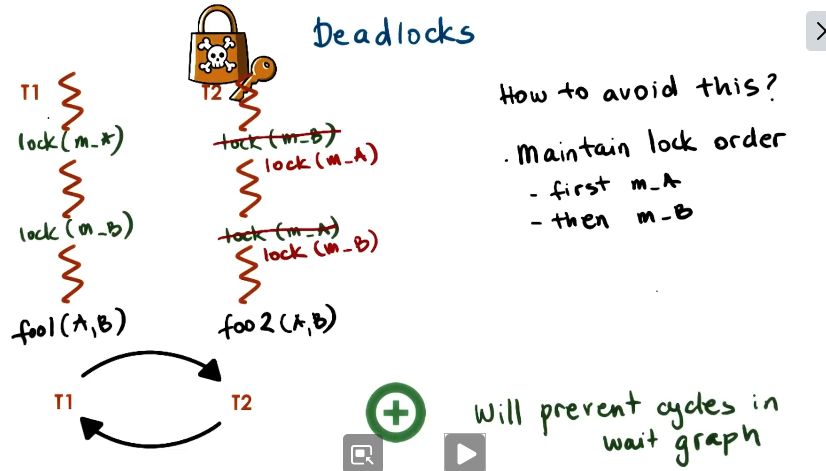 Deadlocks
T1
lock(m_A)
lock(m_B)
foo1(A,B)
T2
lock(m_B)
lock(m_A)
lock(m_A)
lock(m_B)
foo2(A,B)
T1
T2
How to avoid this?
. Maintain lock order
- first m_A
- then m_B
Will prevent cycles in
wait graph